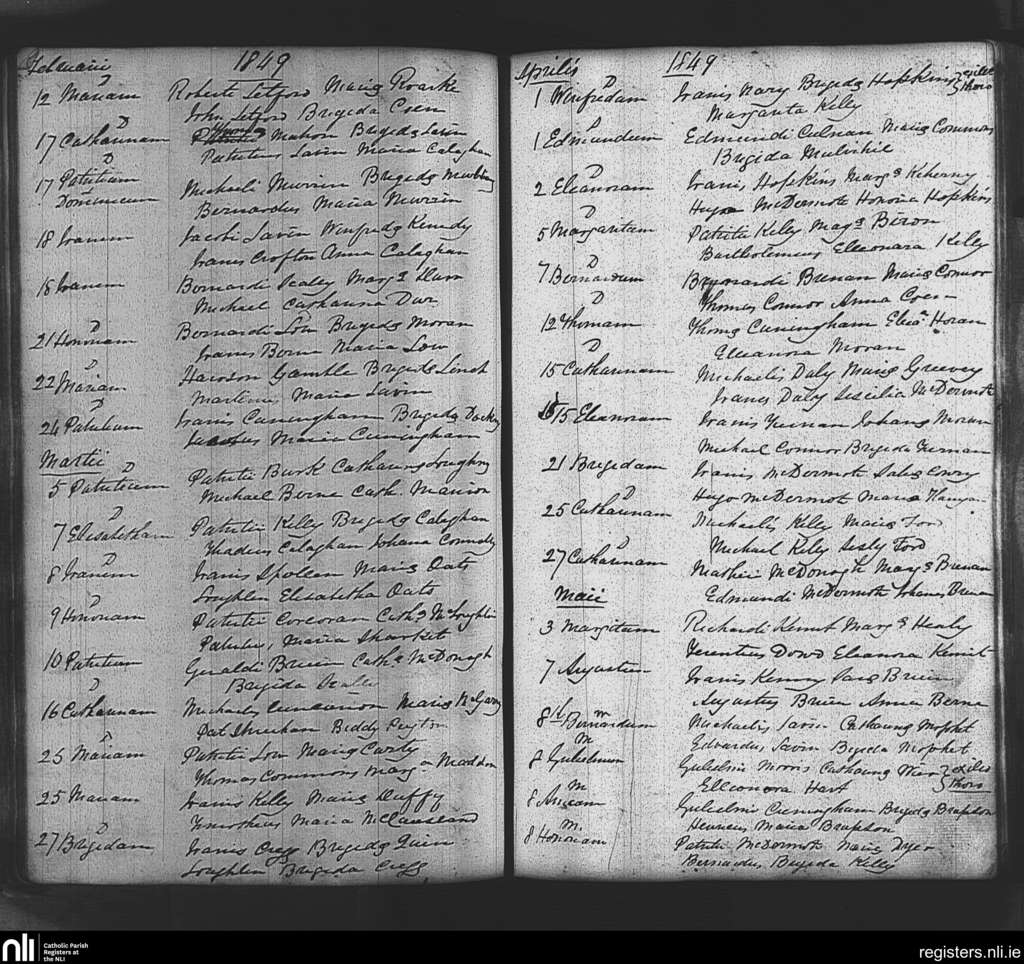 Februarii 1849
D
12 Mariam Roberti Letford Maria Roarke
John Letford Brigeda Coen
D
17 Catharinam Mahon Brigeda Lavin
Patritius Lavin Maria Calaghan
D
17 Patritium Michaeli Murrin Brigeda
Dominicum Bernardus Maria Murrin
18 Ivanem Jacobi Lavin Winfreda Kenedy
Ivanes Crofton Anna Calaghan
18 Ivanem Bernardi Scaley Marga
Michael Catharina
D
21 Honoriam Bernardi Low Brigeda Moran
Ivanes Berne Maria Low
D
22 Mariam Gamble Brigeda Linch
Martinus Maria Lavin
D
24 Patritium Ivanis Cunningham Brigeda
Maria Cuningham
Martii
D
5 Patritium Patritii Burk Catharina Loughny
Michael Berne Cath. Manion
D
7 Elisabetham Patritii Kelly Brigeda Calaghan
Thadeus Calaghan Johana Connolly
D
8 Ivanem Ivanis Spollen Maria Oats
Loughlin Elisabetha Oats
D
9 Honoriam Patritii Corcoran Catha McLoughlin
Maria Sharket
10 Patritium Geraldi Bruin Catha McDonagh
Brigida
D
16 Catharinam Michaelis Cuncanon Maria McGarry
Pat Sheehan Biddy Peyton
D
25 Mariam Patritii Low Maria Carty
Thomas Commons Marga Madden
25 Mariam Ivanis Kelly Maria Duffy
Timotheus Maria McCausland
D
27 Brigidam Ivanis Cregg Brigeda Quin
Loughlin Brigeda Cregg
Aprilis 1849
D
1 Winefredam Ivanis Nary Brigeda Hopkins
Margarita Kelly
D
1 Edmundum Edmundi Culnan Maria Commons
Brigida Mulvihil
D
2 Eleanoram Ivanis Hopkins Marga
Hugo McDermott Honoria Hopkins
D
5 Margaritam Patritii Kelly Marga Biron
Bartholemeus Eleonora Kelly
D
7 Bernardum Bernardi Brenan Maria Connor
Thomas Connor Anna Coen
D
12 Thomam Thoma Cuningham Elea Horan
Eleanora Moran
D
15 Catharinam Michaelis Daly Maria Greevey
Ivanes Daly McDermott
15 Eleanoram Ivanis Johana Moran
Michael Connor Brigeda
21 Brigedam Ivanis McDermott
Hugo McDermott Maria
D
25 Catharinam Michaelis Kelly Maria Ford
Michael Kelly Ford
D
27 Catharinam Mathei McDonagh Marga Brenan
Edmundi McDermott Johannes Brenan
Maii
3 Margitam Richardi Marga Healy
Terentius Dowd Eleanora
7 Augustin Ivanis Kenny Bruin
Augustus Bruin Anna Berne
M
8th Bernardum Michaelis Lavin Catharina Mophet
Edvardus Lavin Brigeda Mophet
M
8 Gulielmum Gulielmi Morris Catharina
Elleonora Hart
M
8 Gulielmi Cuningham Brigeda
Maria
M.
8 Honoriam Patritii McDermott Maria Dyer
Bernardus Brigida Kelly
nli Catholic Parish
Registers at
the NLI
registers.nli.ie